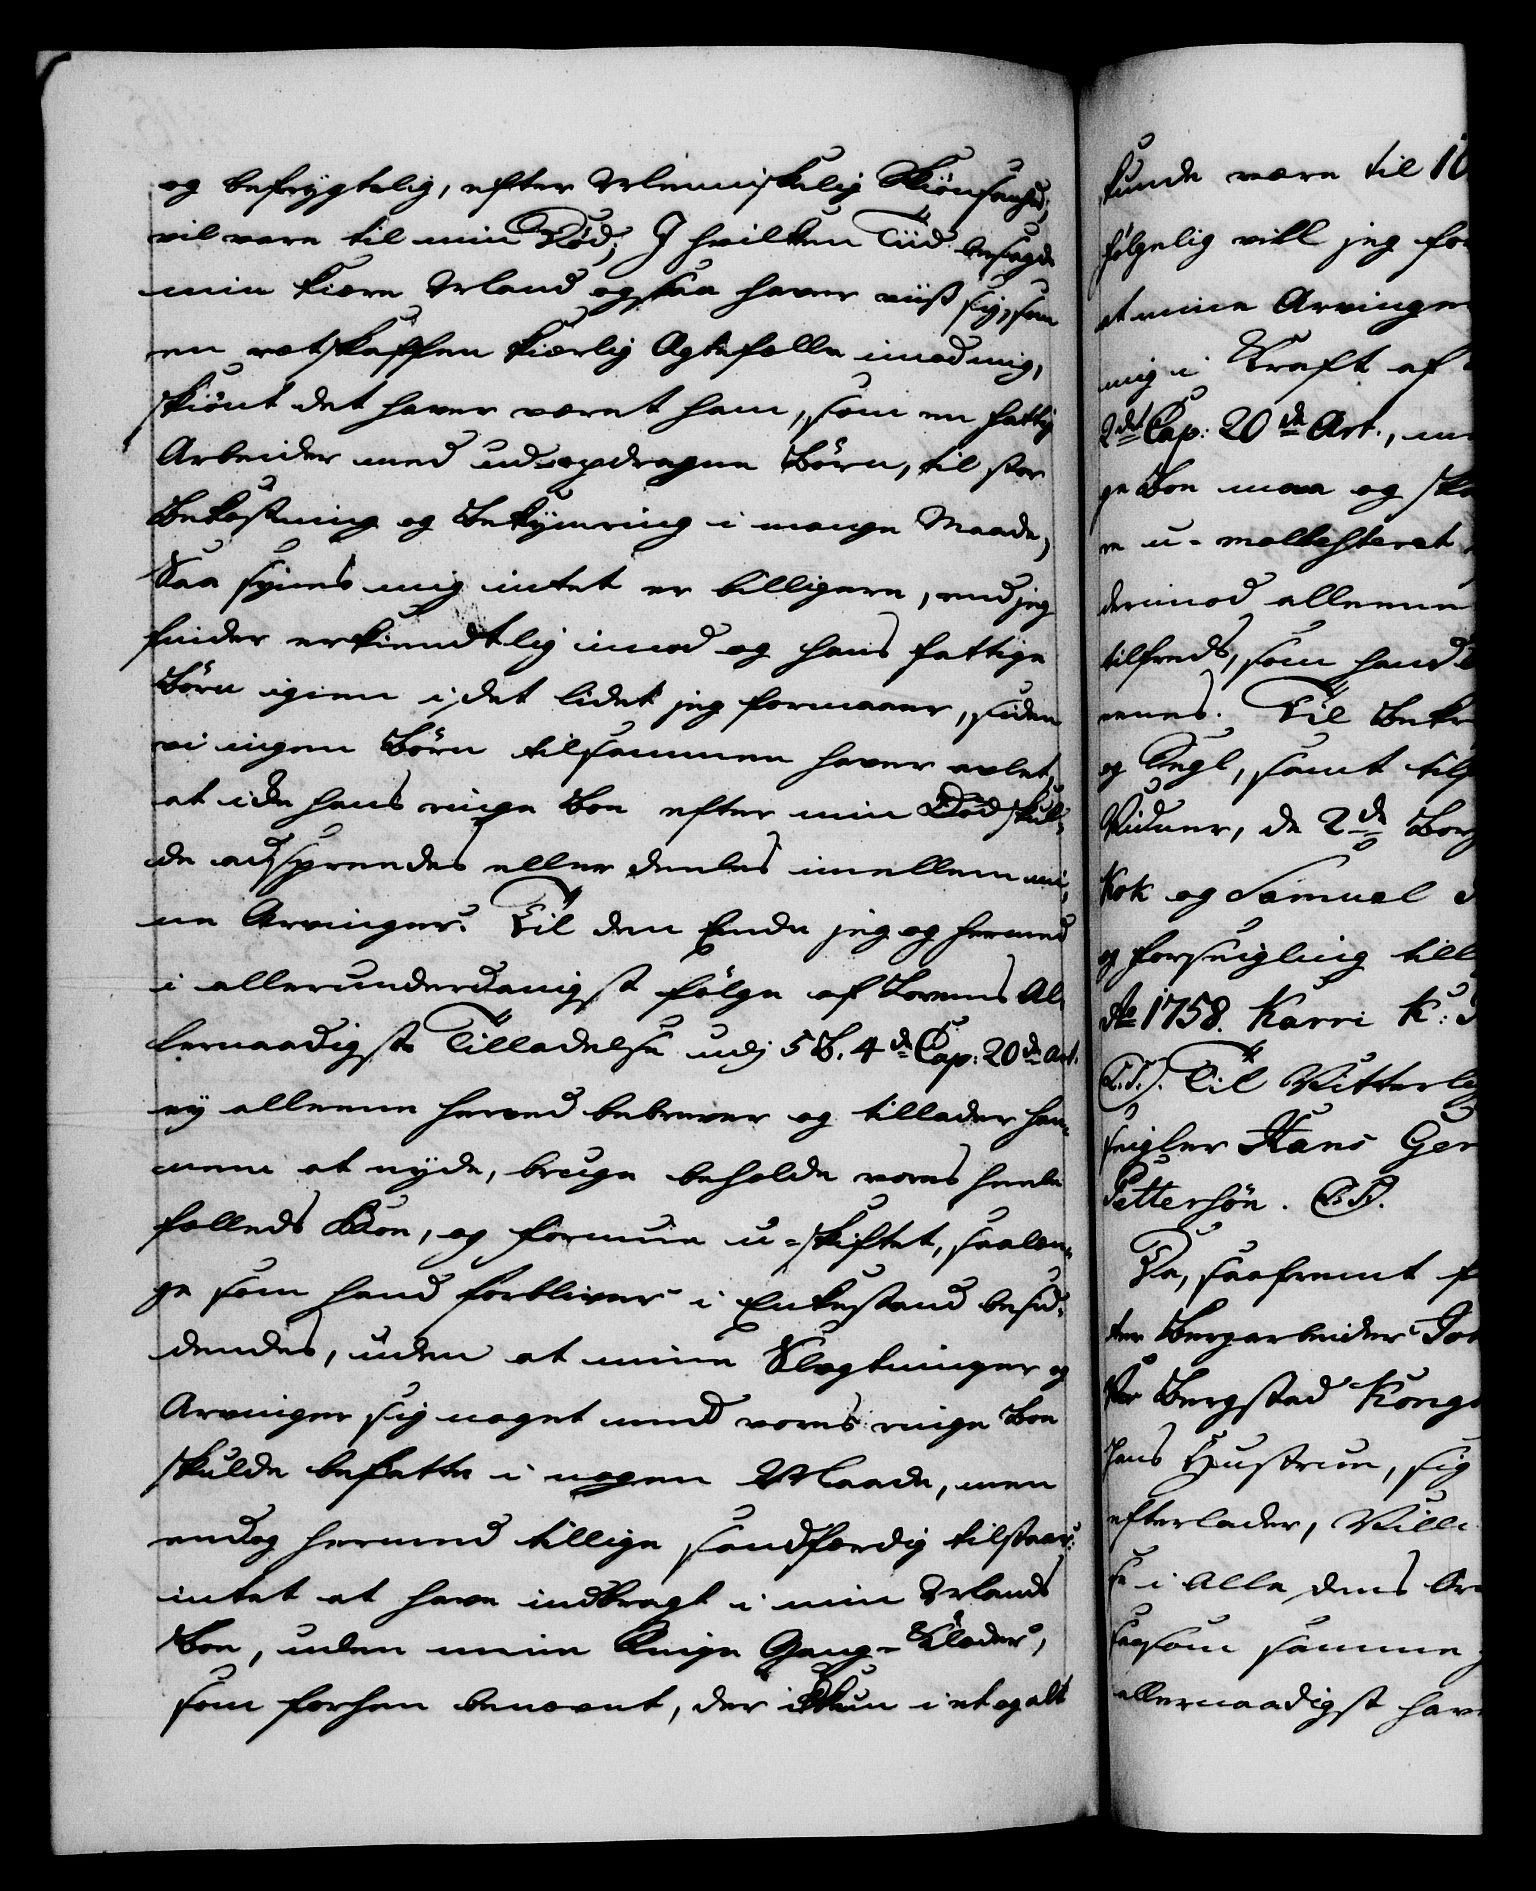 og befrygtelig, efter Menniskelig Skiønsomhed,
vil vare til min Død; I hvilken Tiid besagde
min kiære Mand ogsaa haver viist sig, som
en retskaffen kiærlig Ægtefælle imod mig,
skiønt det haver været ham, som en fattig
Arbeider med uopdragne Børn, til stor
Bekostning og Bekymring i mange Maade,
Saa synes mig intet er billigere, end jeg
finder erkiendtlig imod og hans fattige
Børn igien i det lidet jeg formaaer, siden
vi ingen Børn tilsammen haver avlet,
at icke hans ringe Boe efter min Død skul-
de adspredes eller deeles imellem mi-
ne Arvinger. Til den Ende jeg og hermed
i allerunderdanigst følge af Lovens Al-
lernaadigste Tilladelse udj 5 B. 4de Cap: 20de Art.
ey alleene herved bebrever og tillader ham
at nyde, bruge beholde vores heele
fælleds Boe, og formue u-skiftet, saalæn-
ge som hand forbliver i Enkestand besid-
dendes, uden at mine Slegtninger og
Arvinger sig noget med vores ringe Boe
skulde befatte i nogen Maade, men
endog hermed tillige sandfærdig tilstaar:
intet at have indbragt i min Mands
Boe, uden mine Ringe Gang-Klæder,
som forhen benævnt, der ickun i et og alt
kunde være til 10
følgelig vill jeg for
at mine Arvinger
mig i Kraft af
2det Cap: 20de Art., 
ge Boe maa og ska
re u-molesteret
derimod alleene
tilfreds, som hand
enes. Til Bekr
og Segl, samt til
Vidner, de 2de Borg
Kok og Samuel
og forseigling till
Ao 1758. Karri K:
(L.S.). Til Vitterlig
seigler Hans Ger
Pettersøn. (L.S.).
Da, saafremt f
ter Bergarbeider Joh
vor Bergstad Kongs
hans Hustrue, sig
efterlader, Ville
se i Alle dens Or
saasom samme
allernaadigst hav